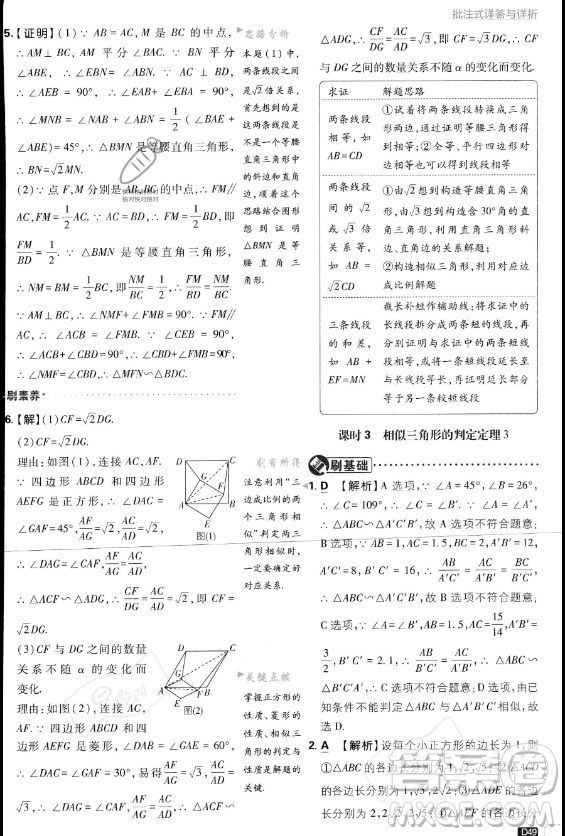 批注式详答与详析
5.【证明】(1)∵ AB = AC, M 是 BC 的中点,
∴ AM⊥BC, AM 平分∠BAC. ∵ BN 平分
∠ABE, ∴ ∠EBN = ∠ABN. ∵ AC ⊥ BD,
∴ ∠AEB = 90°, ∴ ∠EAB + ∠EBA = 90°,
∴ ∠MNB = ∠NAB + ∠ABN = 1/2 (∠BAE +
∠ABE)=45°,∴ △BMN 是等腰直角三角形,
∴ BN=√2MN.
(2)∵ 点 F, M 分别是 AB, BC 的中点,∴ FM∥
AC, FM = 1/2 AC. ∵ AC = BD, ∴ FM = 1/2 BD, 即
FM/BD = 1/2. ∵ △BMN 是等腰直角三角形,
∴ NM = BM = 1/2 BC, 即 NM/BC = 1/2, ∴ FM/BD = NM/BC.
∵ AM⊥BC, ∴ ∠NMF+∠FMB = 90°. ∵ FM∥
AC, ∴ ∠ACB = ∠FMB. ∵ ∠CEB = 90°,
∴ ∠ACB+∠CBD=90°,∴ ∠NMF=∠CBD,
∴ △MFN∽△CBD.
思路分析
本题(1)中,
两条线段之间
是√2倍关系,
首先想到的是
这两条线段是
一个等腰
直角三角形
中的斜边和直角
边,按照这个
思路结合图形
想到证明
△BMN 是等
腰直角三角
形.
快对快对快对
刷素养
6.【解】(1) CF=√2DG.
(2) CF=√2DG.
理由:如图(1),连接 AC, AF.
∵ 四边形 ABCD 和四边形
AEFG 是正方形, ∴ ∠DAC =
∠GAF = 45°, AF/AG = √2, AC/AD = √2,
∴ ∠DAG = ∠CAF, AF/AG = AC/AD,
∴ △ACF ∽ △ADG, ∴ CF/DG = AC/AD = √2, 即 CF =
√2DG.
D C G F A B E
图(1)
(3) CF 与 DG 之间的数量
关系不随 α 的变化而
变化.
理由:如图(2),连接 AC,
AF. ∵ 四边形 ABCD 和四
边形 AEFG 是菱形, ∴ ∠DAB = ∠GAE = 60°,
∴ ∠DAC = ∠GAF = 30°, 易得 AF/AG = AC/AD =
√3, ∴ ∠DAG = ∠CAF, ∴ △ACF ∽
D C G F A B E
图(2)
刷有所得
注意利用“三
边成比例的两
个三角形相
似”判定两三
角形相似时,
一定要确定好
对应关系.
关键点拨
掌握正方形的
性质、菱形的
性质、相似三
角形的判定与
性质是解题的
关键.
△ADG, ∴ CF/DG = AC/AD = √3, 即 CF = √3DG, ∴ CF
与 DG 之间的数量关系不随 α 的变化而变化.
求证 解题思路
两条线段相等,如 AB=CD
①试着将两条线段转换成三角
形两边,通过证明等腰三角形得
到相等;②全等、平行四边形对
边相等也可以得到线段相等
两条线段间的√2或√3倍关系等,如 AB = √2CD
①由√2想到构造等腰直角三角
形,由√3想到构造含30°角的直
角三角形,利用直角三角形斜
边、直角边的关系解题;
②构造相似三角形,利用对应边
成比例解题
三条线段的和差,如 AB + EF=MN
截长补短作辅助线:将求证中的
长线段拆分成两条短的线段,再
分别证明与求证中的两条线段
相等,或将某一短线段延长至
与长线段相等,证明延长部分
等于另一条较短线段
课时3 相似三角形的判定定理3
刷基础
1. D 【解析】A 选项, ∵ ∠A = 45°, ∠B = 26°,
∴ ∠C = 109°, ∴ ∠C = ∠B'. ∵ ∠A = ∠A',
∴ △ABC∽△A'C'B',故 A 选项不符合题意;
B 选项,∵ AB=1, AC=1.5, BC=2, A'B'=12,
A'C'=8, B'C' = 16, ∴ AB/A'C' = AC/A'B' = BC/B'C',
∴ △ABC∽△A'C'B',故 B 选项不符合题意;
C 选项, ∵ ∠A = ∠A', AB=1.5, AC = 15/14, A'C'=
3/2, B'C' = 2.1, ∴ △ABC ∽
△A'B'C',故 C 选项不符合题意;D 选项,由已
知条件不能判定△ABC 与△A'B'C'相似.故
选 D.
2. A 【解析】设每个小正方形的边长为 1, 则
①△ABC 的各边长分别为
长分别为
D49